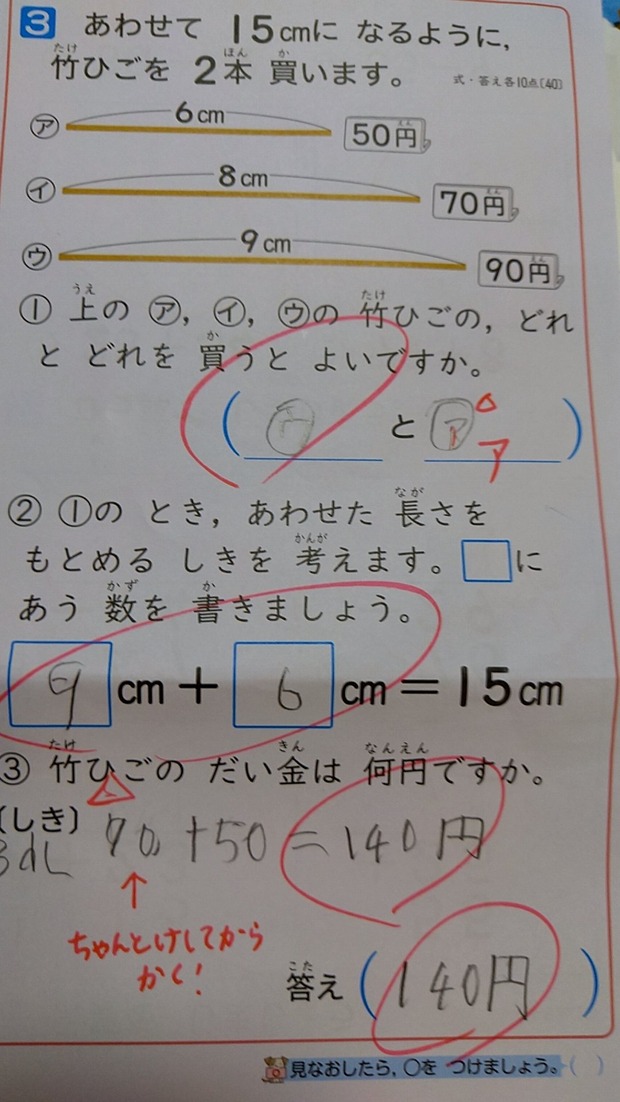 3 あわせて 15cmに なるように,
竹ひごを 2本 買います。
式・答え各10点〔40〕
㋐ 6cm 50円
㋑ 8cm 70円
㋒ 9cm 90円
① 上の ㋐, ㋑, ㋒の 竹ひごの, どれ
と どれを 買うと よいですか。
( ㋒ と ㋐ )
ア
② ①の とき, あわせた 長さを
もとめる しきを 考えます。□に
あう 数を 書きましょう。
9 cm + 6 cm = 15cm
③ 竹ひごの だい金は 何円ですか。
(しき) 90+50=140円
ちゃんとけしてから
かく!
答え (140円)
見なおしたら, ○を つけましょう。( )